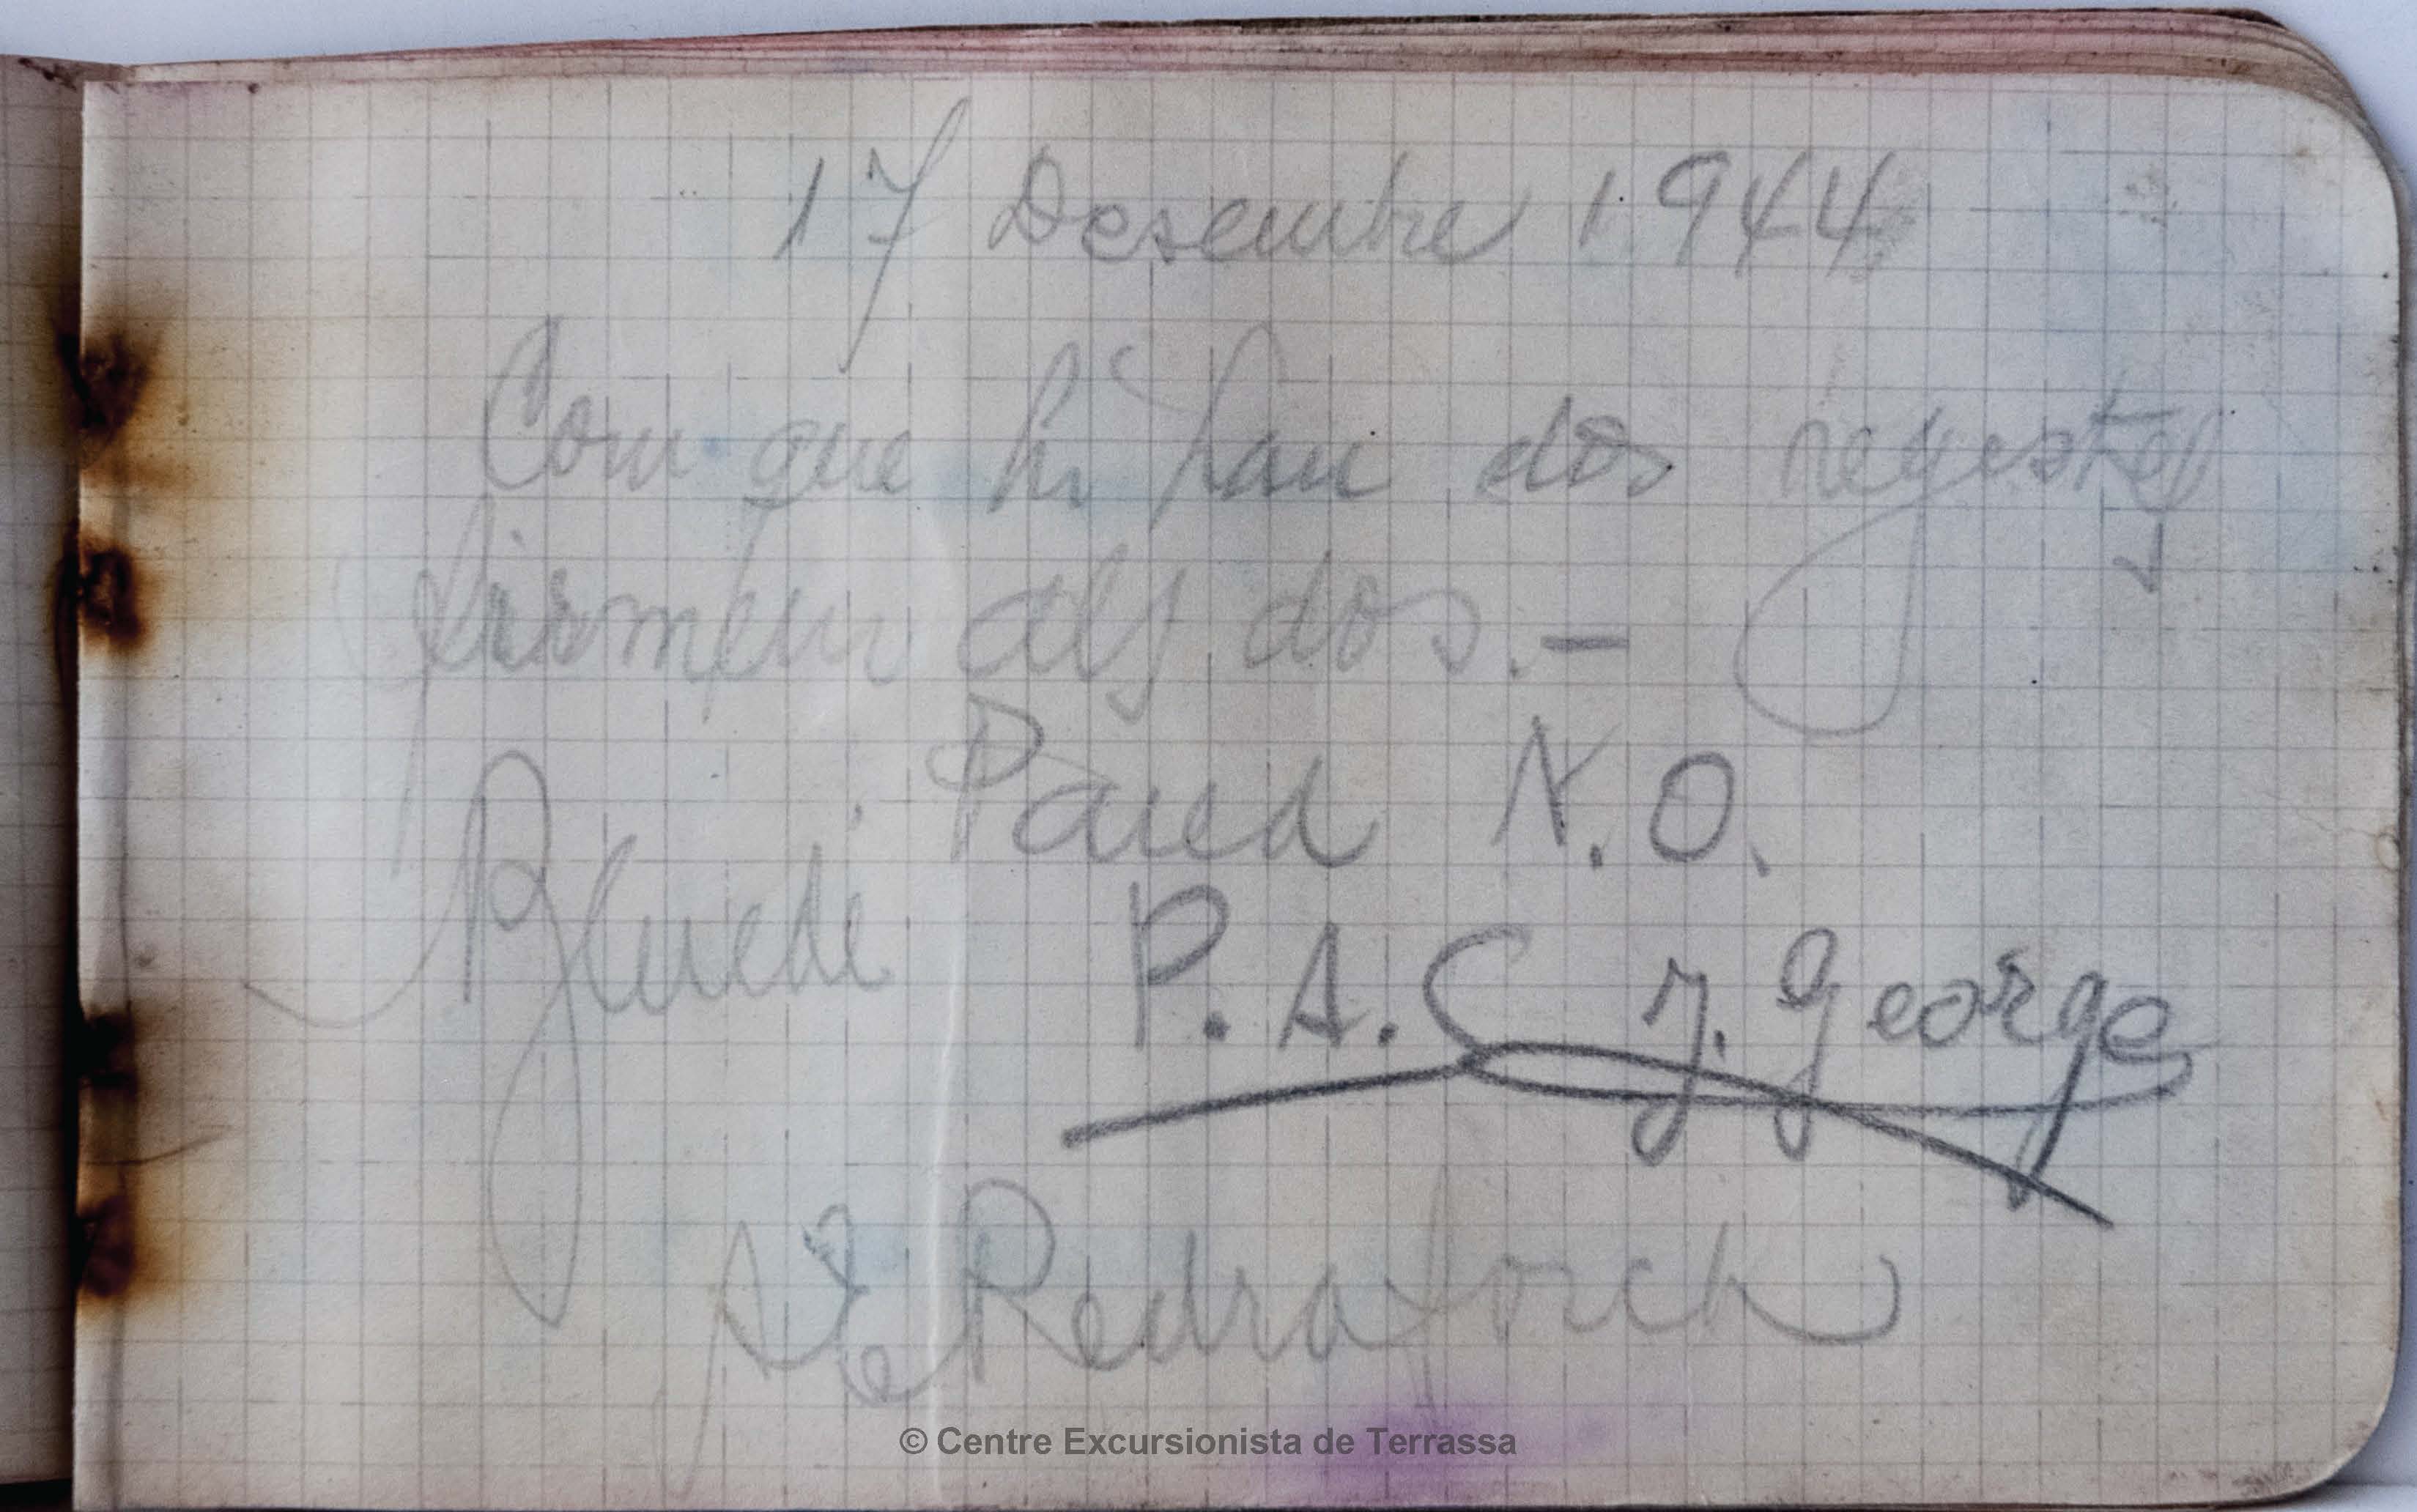 17 Desembre 1944
Com que hi han dos regestes
firmem als dos.—
Pared N.O.
P.A.C. J. George
Pedraforch
© Centre Excursionista de Terrassa